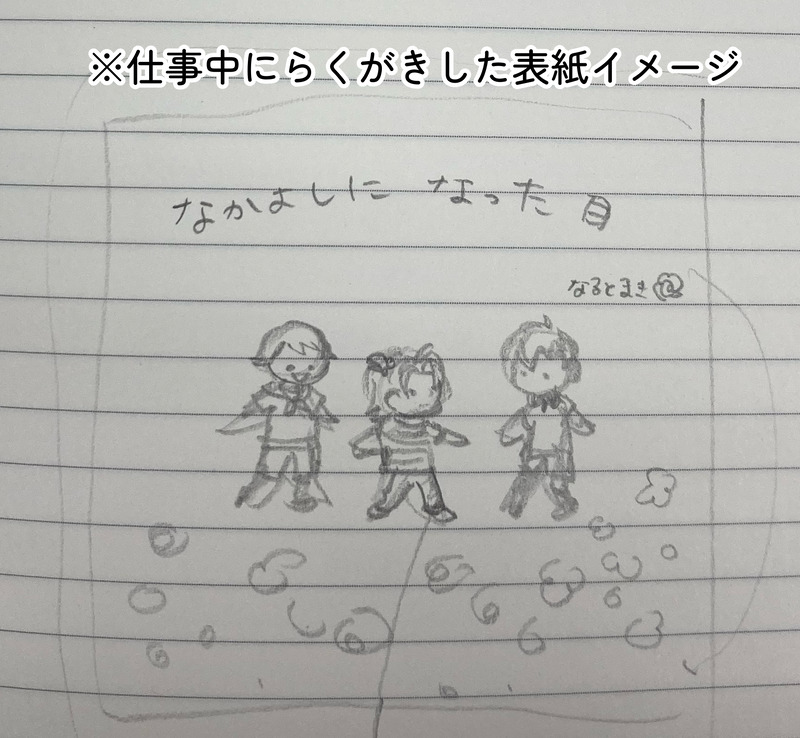 ※仕事中にらくがきした表紙イメージ
なかよしに なった日
なるとまき